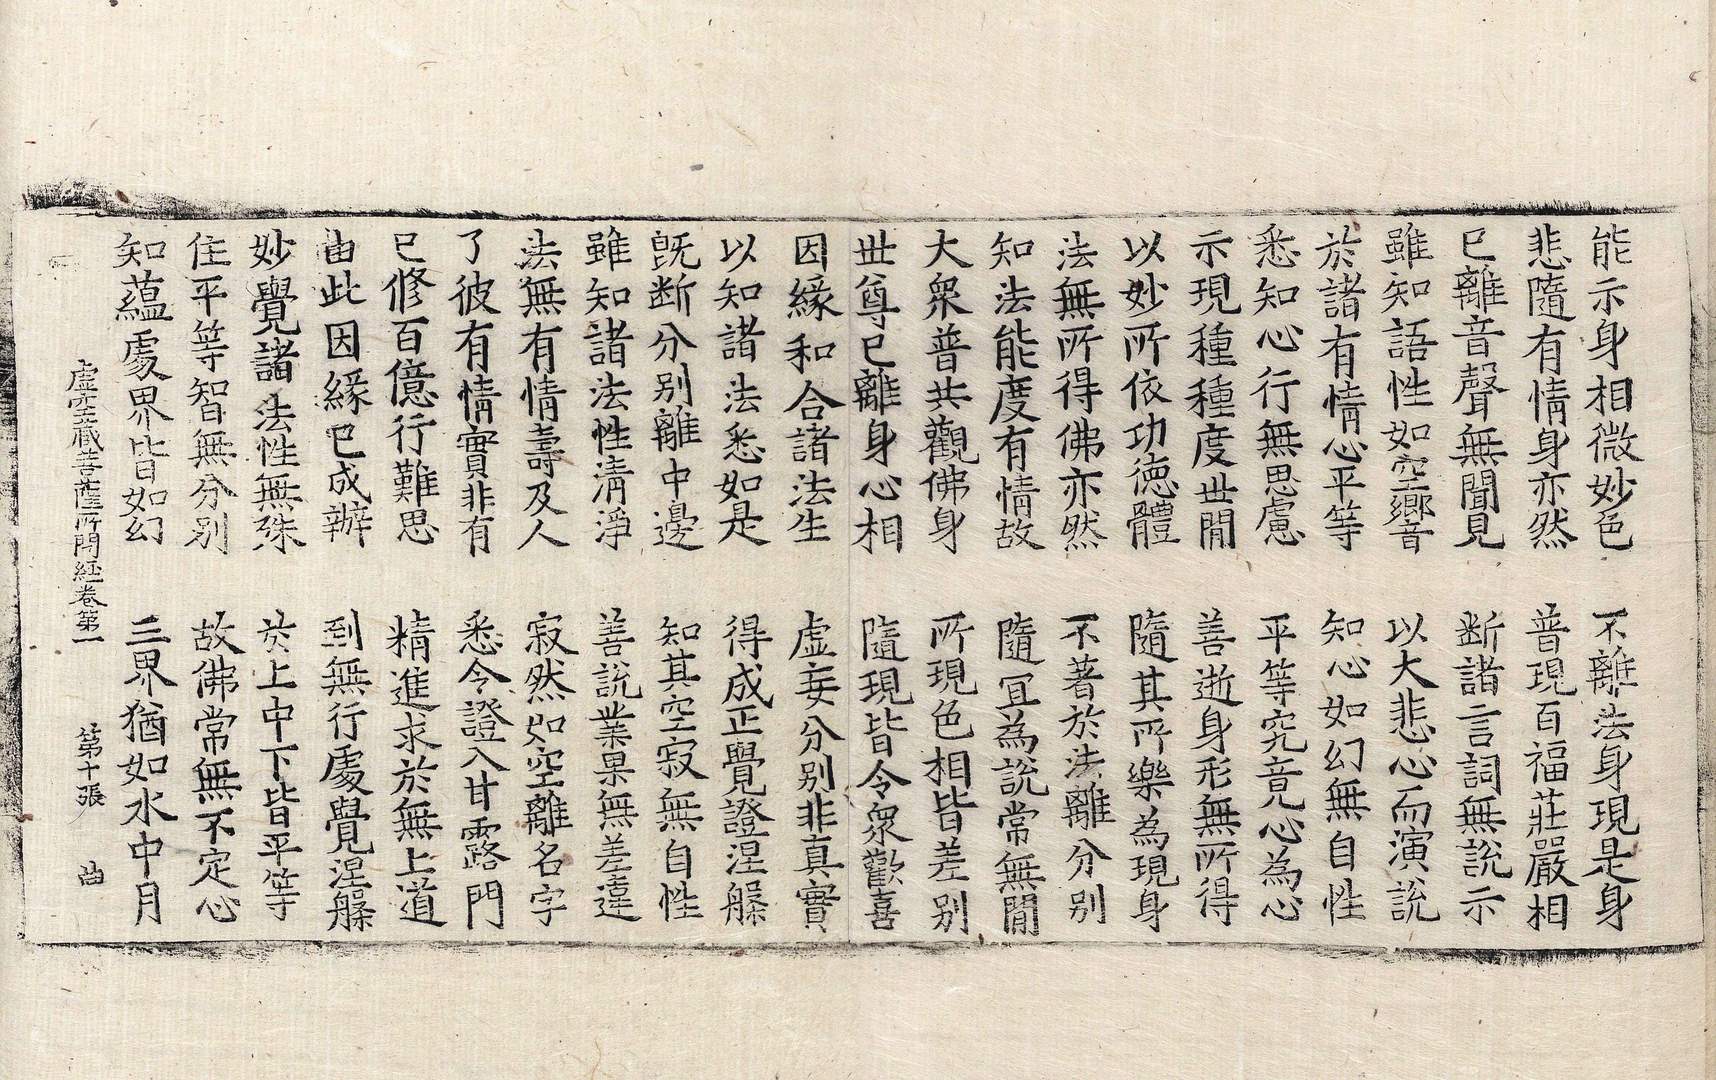 能示身相微妙色　不離法身現是身
悲隨有情身亦然　普現百福莊嚴相
已離音聲無聞見　断諸言詞無說示
雖知語性如空響　以大悲心而演說
於諸有情心平等　知心如幻無自性
悉知心行無思慮　平等究竟心為心
示現種種度世間　善逝身形無所得
以妙所依功德體　隨其所樂為現身
法無所得佛亦然　不著於法離分別
知法能度有情故　隨冝為說常無間
大衆普共觀佛身　所現色相皆差別
世尊已離身心相　隨現皆令衆歡喜
因緣和合諸法生　虛妄分別非真實
以知諸法悉如是　得成正覺證涅槃
旣断分別離中邊　知其空寂無自性
雖知諸法性清淨　善說業果無差違
法無有情壽及人　寂然如空離名字
了彼有情實非有　悉令證入甘露門
已修百億行難思　精進求於無上道
由此因緣已成辦　到無行處覺涅槃
妙覺諸法性無殊　於上中下皆平等
住平等智無分別　故佛常無不定心
知蘊處界皆如幻　三界猶如水中月
虛空藏菩薩所問経卷第一　第十張　曲